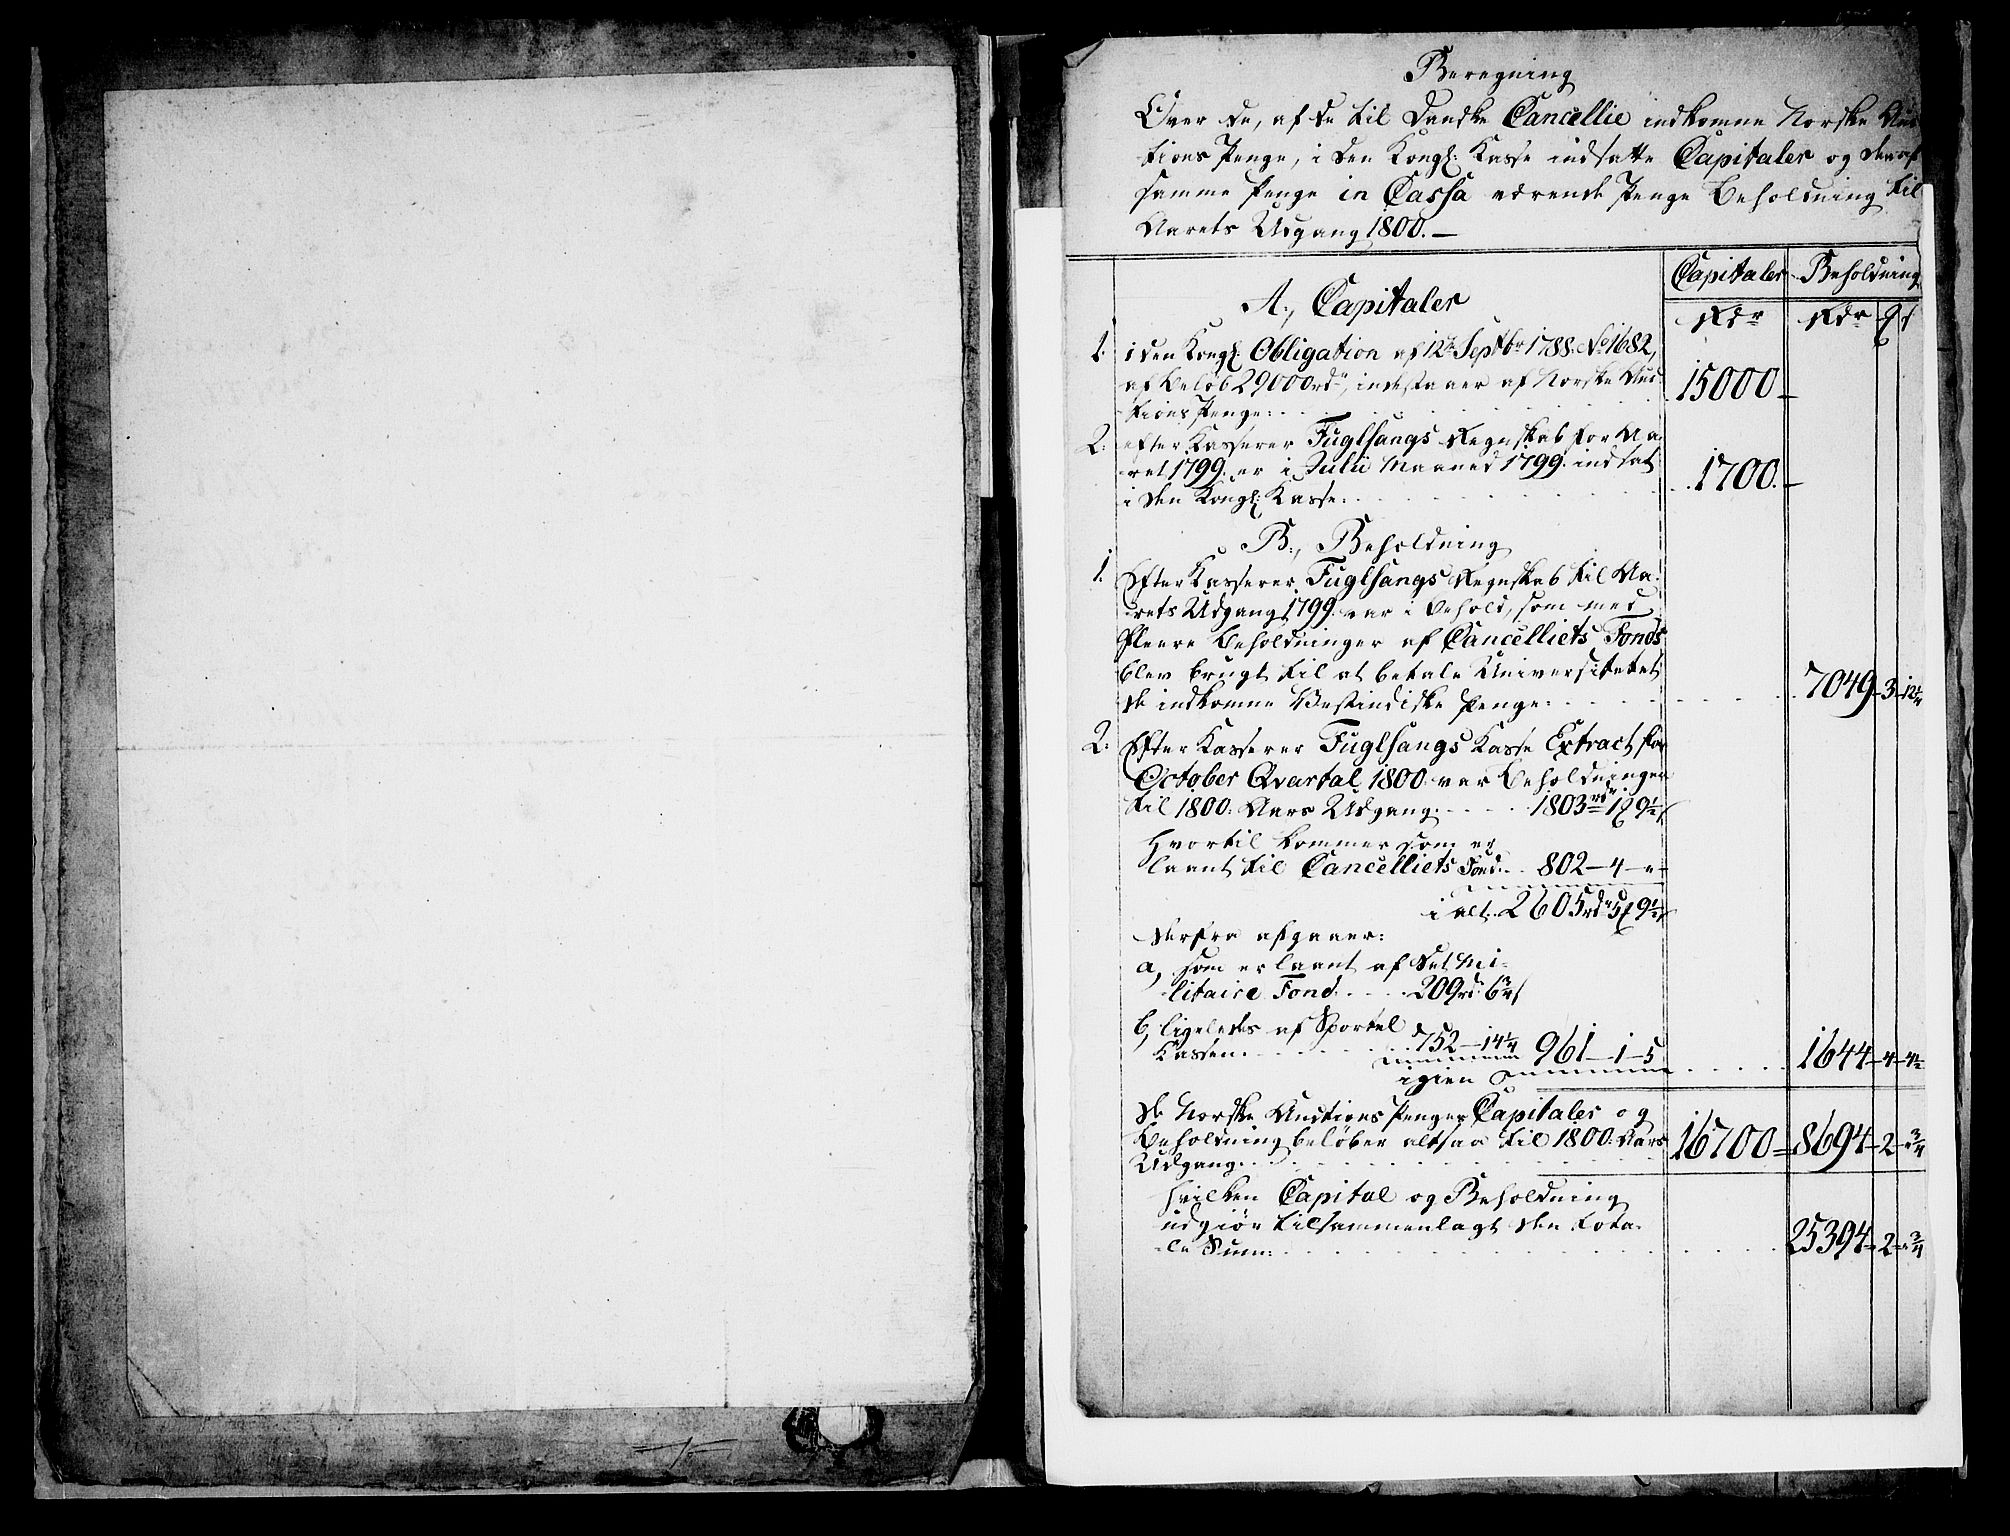 Beregning
Over de, af de til Danske Cancellie indkomne Norske Auc-
tions Penge, i den Kongl: Kasse indsatte Capitaler og den af
samme Penge in Cassa værende Penge Beholdning til
Aarets Udgang 1800. —
Capitaler Beholdning
A., Capitaler
Rdr Rdr ß
1. i den Kongl: Obligation af 12te Septbr 1788. No 1682,
af Beløb 29000rdr, indestaaer af Norske Auc-
tions Penge: 15000
2. efter Kasserer Fuglsangs Regnskab for Aa-
ret 1799. er i Julii Maaned 1799. indsat
i den Kongl: Kasse. 1700.
B., Beholdning
1. Efter Kasserer Fuglsangs Regnskab til Aa-
rets Udgang 1799. var i behold, som med
fleere Beholdninger af Cancelliets Fonds
blev brugt til at betale Universitetet
de indkomne Vestindiske Penge. 7049-3-12¼
2. Efter Kasserer Fuglsangs Kasse Extract for
October Qvartal 1800 var Beholdningen
til 1800. Aars Udgang. 1803rdr 1 9½
hvortil kommer som er
laant til Cancelliets Fond. 802-4-"-
i alt. 2605rdr 5 9½
derfra afgaaer:
a, som er laant af Det Mi-
litaire Fond. 209rd: 6¾
b, ligeledes af Sportel
Kassen. 752-14¼ 961-1-5
igien 1644-4-4½
de Norske Auctions Penges Capitaler og
Beholdning beløber altsaa til 1800. Aars
Udgang. 16700 8694-2-"¾
hvilken Capital og Beholdning
udgiør tilsammenlagt den tota-
le Sum: 25394-2-"¾